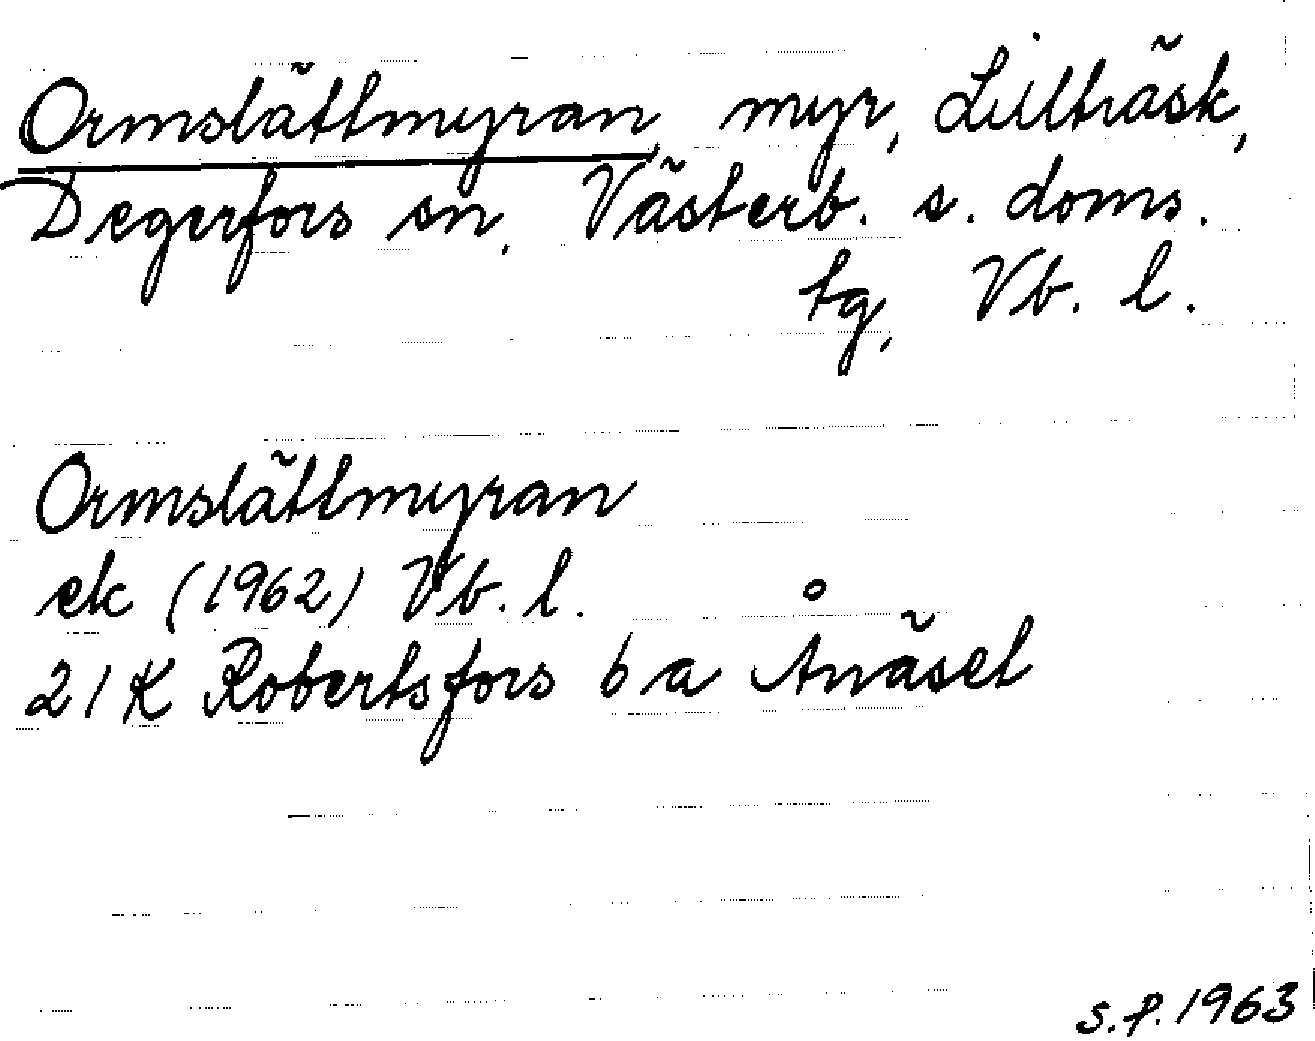 Ormslåttmyran, myr, Lillträsk,
Degerfors sn, Västerb. s. doms.
tg, Vb. l.
Ormslättmyran
ek (1962) Vb. l.
21 K Robertsfors 6 a Ånäset
S.P. 1963